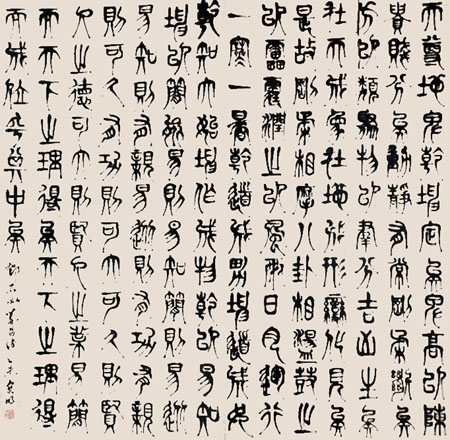 天尊地卑乾坤定矣卑高以陳
貴賤位矣動靜有常剛柔斷矣
方以類聚物以群分吉凶生矣
在天成象在地成形變化見矣
是故剛柔相摩八卦相盪鼓之
以雷霆潤之以風雨日月運行
一寒一暑乾道成男坤道成女
乾知大始坤作成物乾以易知
坤以簡能易則易知簡則易從
易知則有親易從則有功有親
則可久有功則可大可久則賢
人之德可大則賢人之業易簡
而天下之理得矣天下之理得
而成位乎其中矣